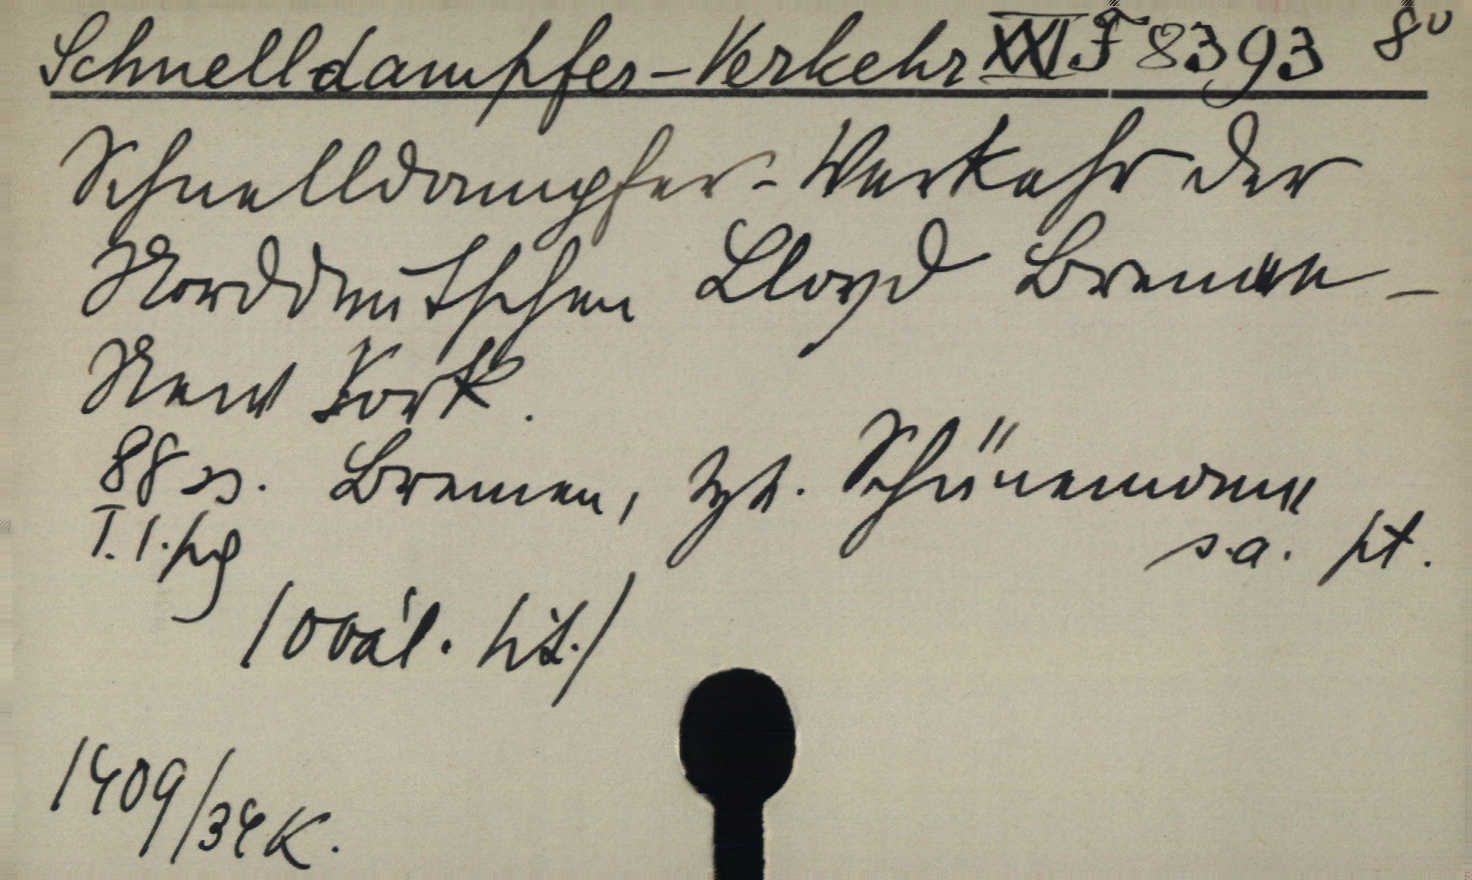 Schnelldampfer-Verkehr XXI F 8393 8°
Schnelldampfer-Verkehr der
Norddeutschen Lloyd Bremen-
New York.
88 ss. Bremen, typ. Schünemann
I. 1. pg s.a. pt.
(ovál. tit.)
1409/34 K.